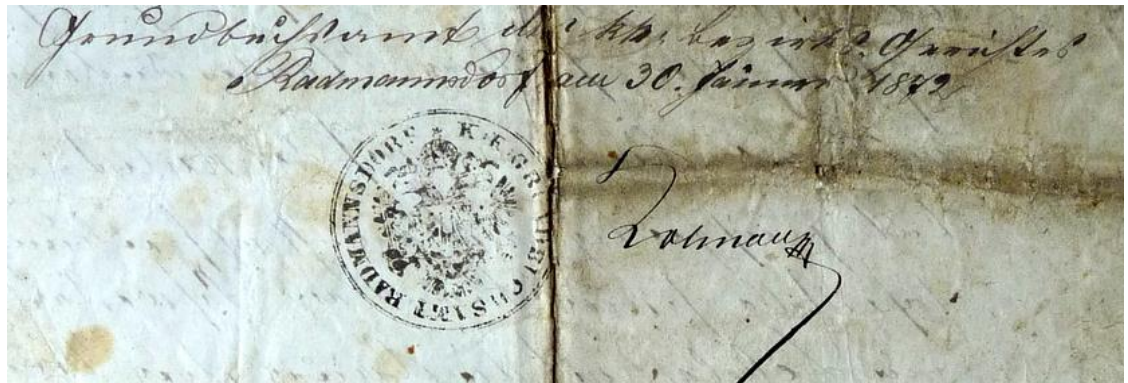 Grundbuchsamt des kk. Bezirks Gerichtes
Radmannsdorf am 30. Jänner 1872
K. K. GRUNDBUCHSAMT RADMANNSDORF